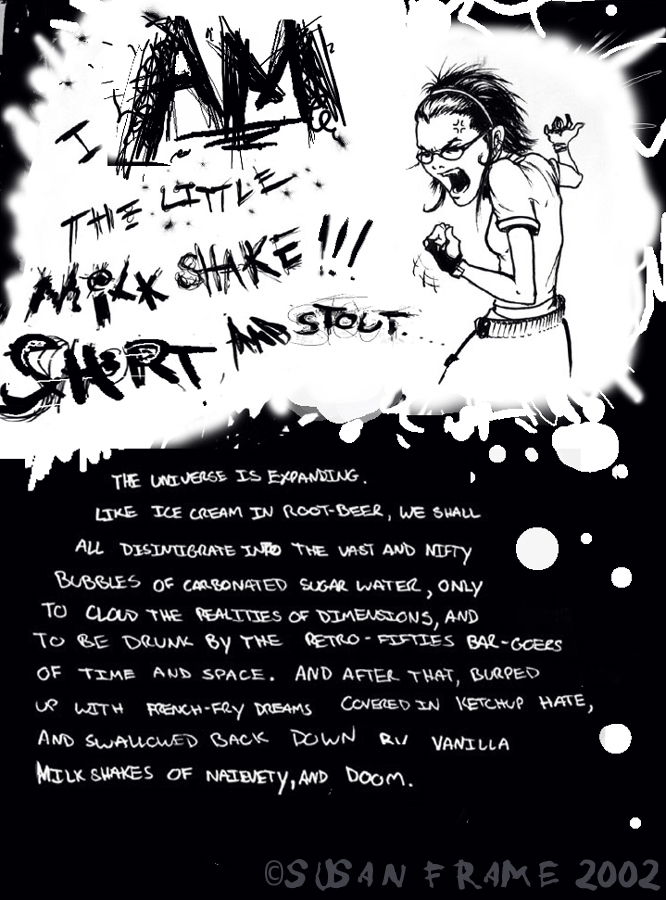 I AM
THE LITTLE
MILK SHAKE!!!
SHORT AND STOUT.....
THE UNIVERSE IS EXPANDING.
LIKE ICE CREAM IN ROOT-BEER, WE SHALL
ALL DISINTIGRATE INTO THE VAST AND NIFTY
BUBBLES OF CARBONATED SUGAR WATER, ONLY
TO CLOUD THE REALITIES OF DIMENSIONS, AND
TO BE DRUNK BY THE RETRO-FIFTIES BAR-GOERS
OF TIME AND SPACE. AND AFTER THAT, BURPED
UP WITH FRENCH-FRY DREAMS COVERED IN KETCHUP HATE,
AND SWALLOWED BACK DOWN VANILLA
MILKSHAKES OF NAIEVETY, AND DOOM.
©SUSAN FRAME 2002